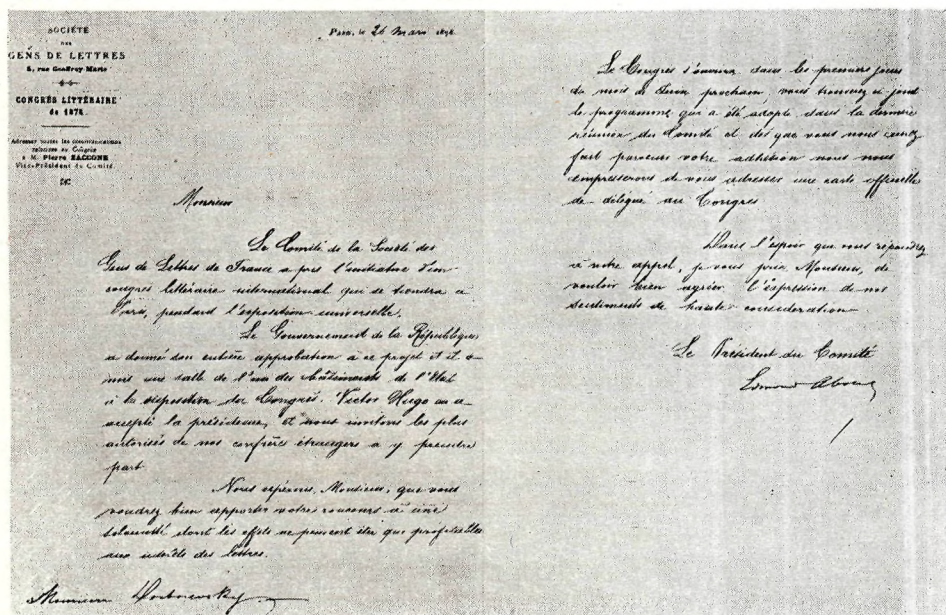 SOCIÉTÉ
DES
GENS DE LETTRES
5, rue Geoffroy Marie
CONGRÈS LITTÉRAIRE
de 1878.
Adresser toutes les communications
relatives au Congrès
à M. Pierre ZACCONE
Vice-Président du Comité
Paris, le 26 Mars 1878
Monsieur
Le Comité de la Société des
Gens de Lettres de France a pris l'initiative d'un
congrès littéraire international qui se tiendra à
Paris, pendant l'exposition universelle.
Le Gouvernement de la République
a donné son entière approbation à ce projet et il a
mis une salle de l'un des bâtiments de l'État
à la disposition du Congrès. Victor Hugo en a
accepté la présidence, et nous invitons les plus
autorisés de nos confrères étrangers à y prendre
part
Nous espérons, Monsieur, que vous
voudrez bien apporter votre concours à une
solennité dont les effets ne peuvent être que profitables
aux intérêts des lettres.
Monsieur Dostoievsky
Le Congrès s'ouvrira dans les premiers jours
du mois de Juin prochain, vous trouverez ci joint
le programme qui a été adopté dans la dernière
réunion du Comité et dès que vous nous aurez
fait parvenir votre adhésion nous nous
empresserons de vous adresser une carte officielle
de délégué au Congrès
Dans l'espoir que vous répondrez
à notre appel, je vous prie, Monsieur, de
vouloir bien agréer l'expression de nos
sentiments de haute considération
Le Président du Comité
Edmond About